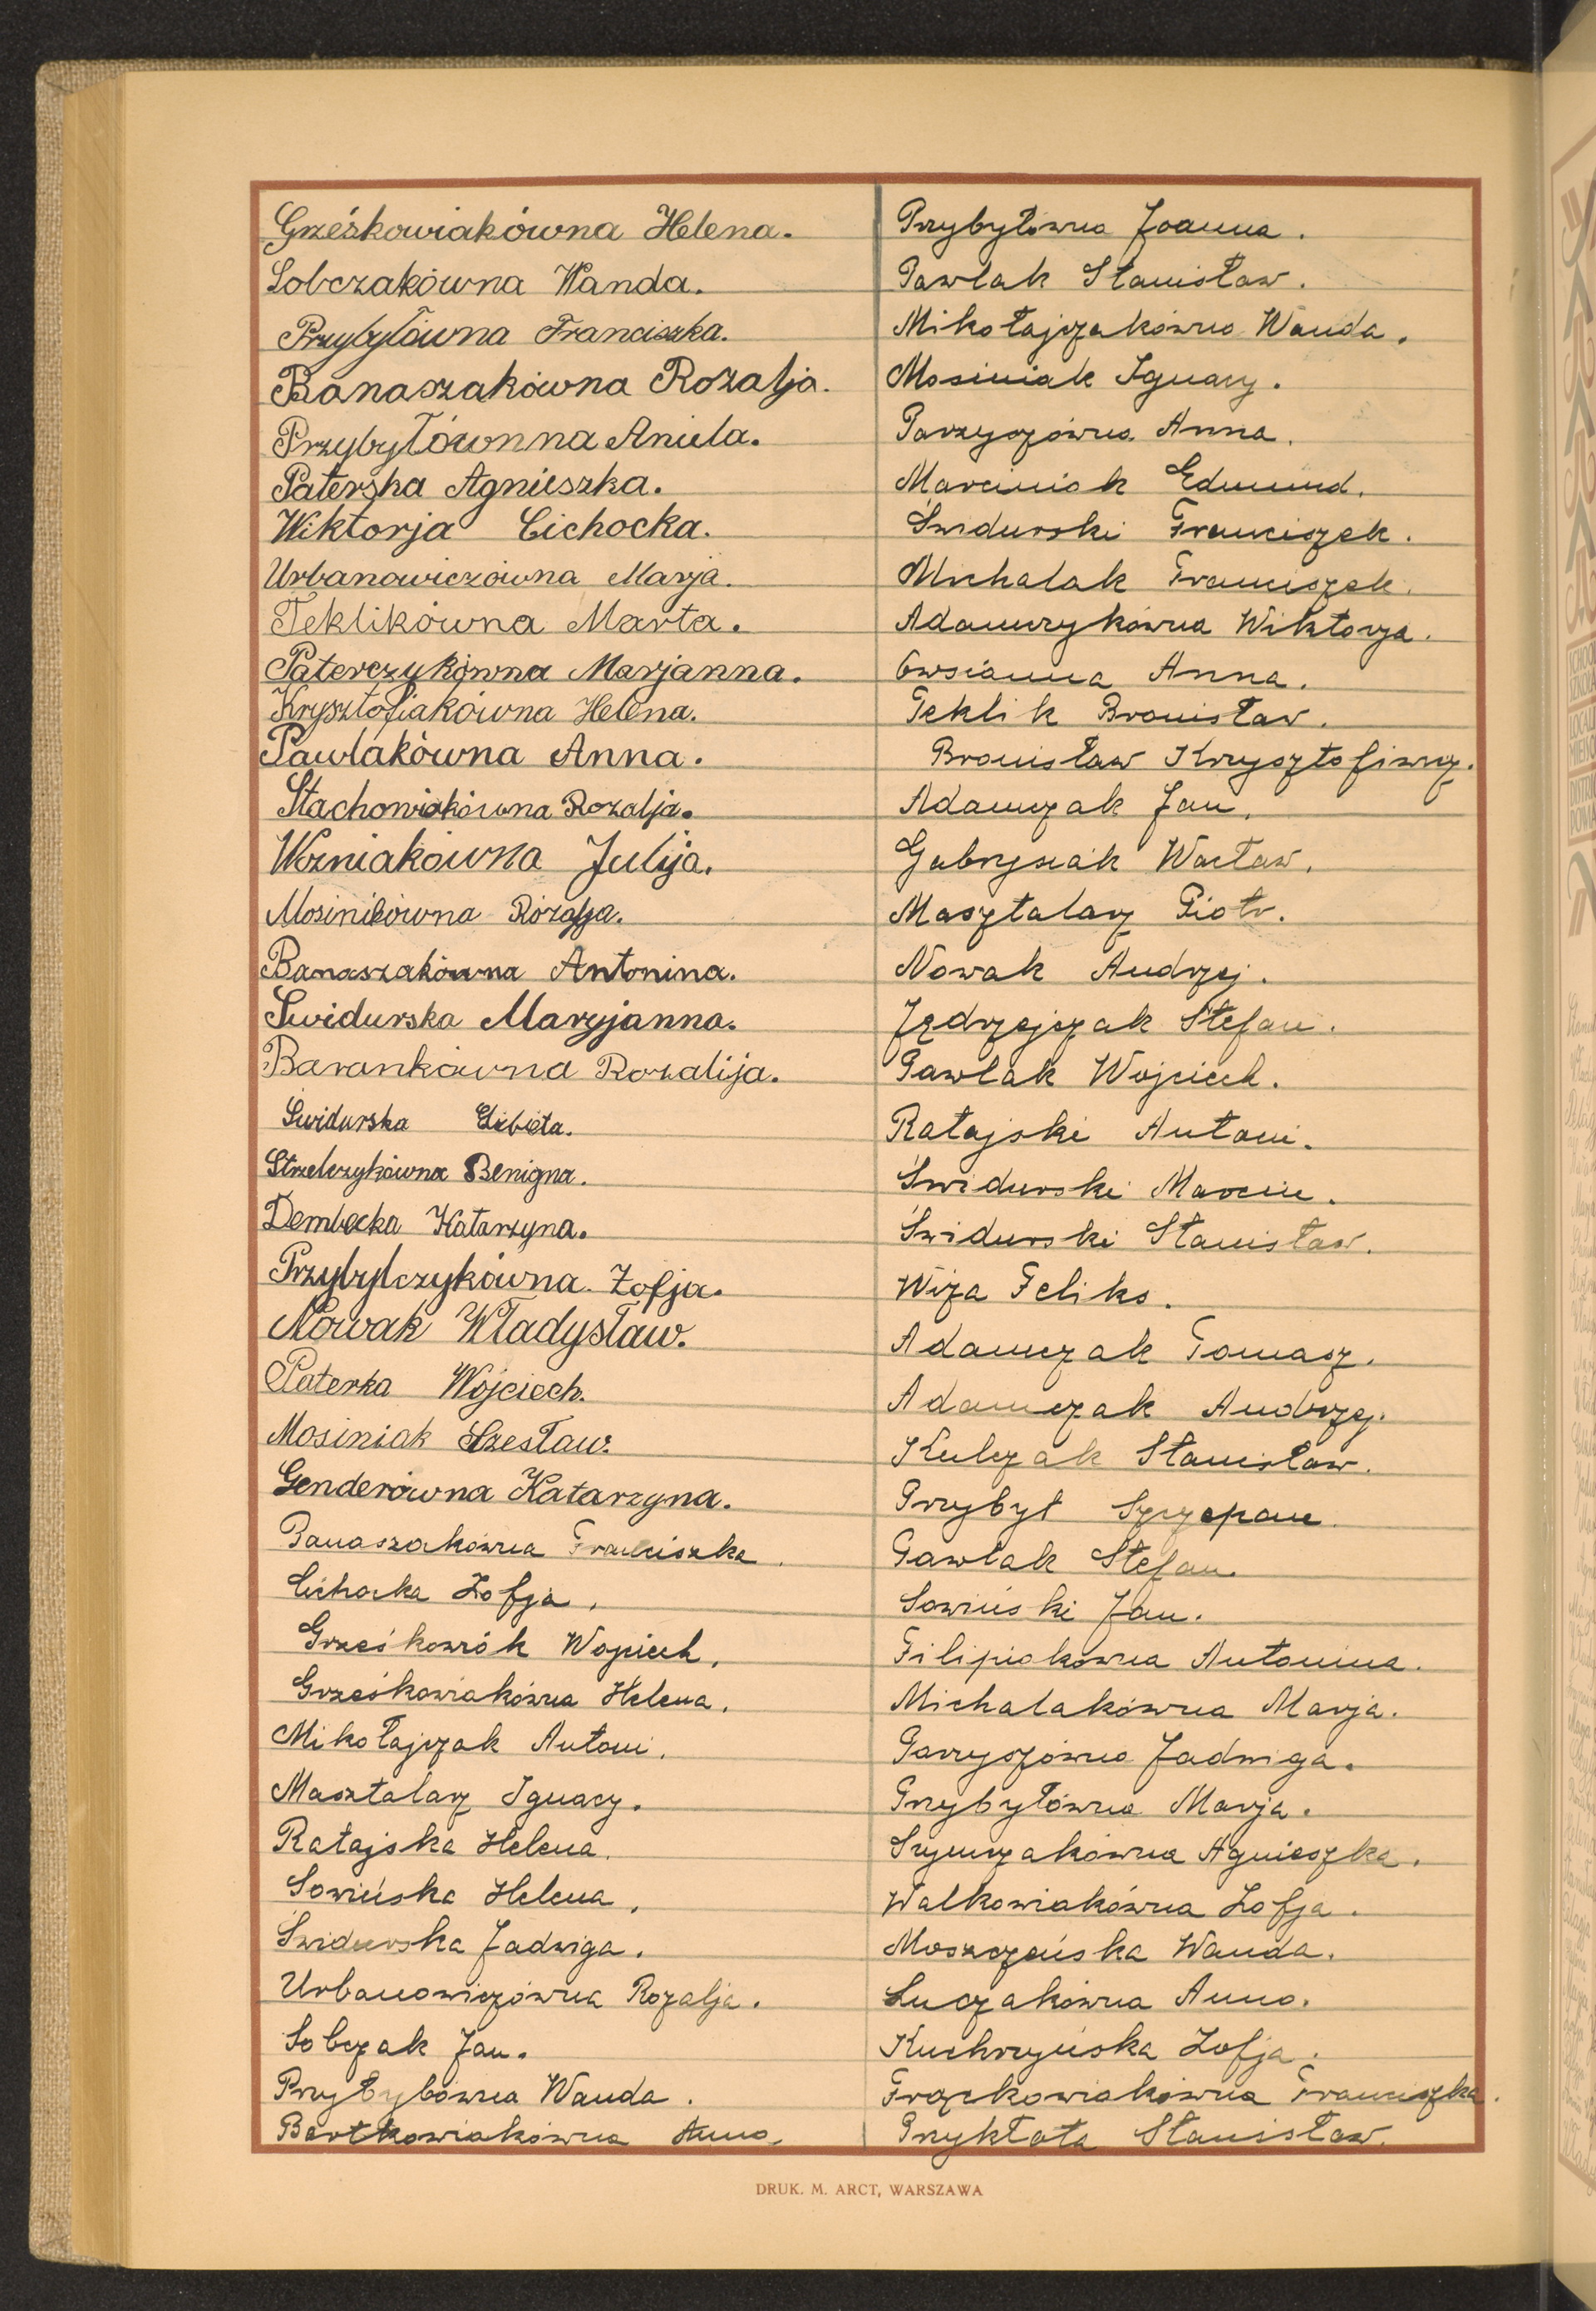 Grześkowiakówna Helena.
Sobczakówna Wanda.
Przybyłówna Franciszka.
Banaszakówna Rozalja.
Przybyłównna Aniela.
Paterska Agnieszka.
Wiktorja Cichocka.
Urbanowiczówna Marja.
Teklikówna Marta.
Paterczykówna Marjanna.
Krysztofiakówna Helena.
Pawlakówna Anna.
Stachowiakówna Rozalja.
Wozniakówna Julija.
Rozalja.
Banaszakówna Antonina.
Swidurska Maryjanna.
Barankówna Rozalija.
Swidurska Elżbieta.
Strzelczykówna Benigna.
Dembecka Katarzyna.
Przybylczykówna Zofja.
Nowak Władysław.
Paterka Wojciech.
Mosiniak Czesław.
Genderówna Katarzyna.
Banaszakówna Franciszka.
Cichocka Zofja.
Grześkowiak Wojciech.
Grześkowiakówna Helena.
Mikołajczak Antoni.
Masztalarz Ignacy.
Ratajska Helena.
Sowińska Helena.
Świdurska Jadwiga.
Urbanowiczówna Rozalja.
Sobczak Jan.
Przybyłówna Wanda.
Bartkowiakówna Anna.
Przybyłówna Joanna.
Pawlak Stanisław.
Mikołajczakówna Wanda.
Mosiniak Ignacy.
Parzyszówna Anna.
Marciniak Edmund.
Świdurski Franciszek.
Michalak Franciszek.
Adamczykówna Wiktorja.
Owsianna Anna.
Teklik Bronisław.
Bronisław Krzysztofiak.
Adamczak Jan.
Gabrysiak Wacław.
Masztalarz Piotr.
Nowak Andrzej.
Jędrzejczak Stefan.
Pawlak Wojciech.
Ratajski Antoni.
Świdurski Marcin.
Świdurski Stanisław.
Wiza Feliks.
Adamczak Tomasz.
Adamczak Andrzej.
Kulczak Stanisław.
Przybył Szczepan.
Pawlak Stefan.
Sowiński Jan.
Filipiakówna Antonina.
Michalakówna Marja.
Parzyszówna Jadwiga.
Przybyłówna Marja.
Szymczakówna Agnieszka.
Walkowiakówna Zofja.
Moszczeńska Wanda.
Łuczakówna Anna.
Kuchrzyńska Zofja.
Frąckowiakówna Franciszka.
Przykłota Stanisław.
DRUK. M. ARCT, WARSZAWA